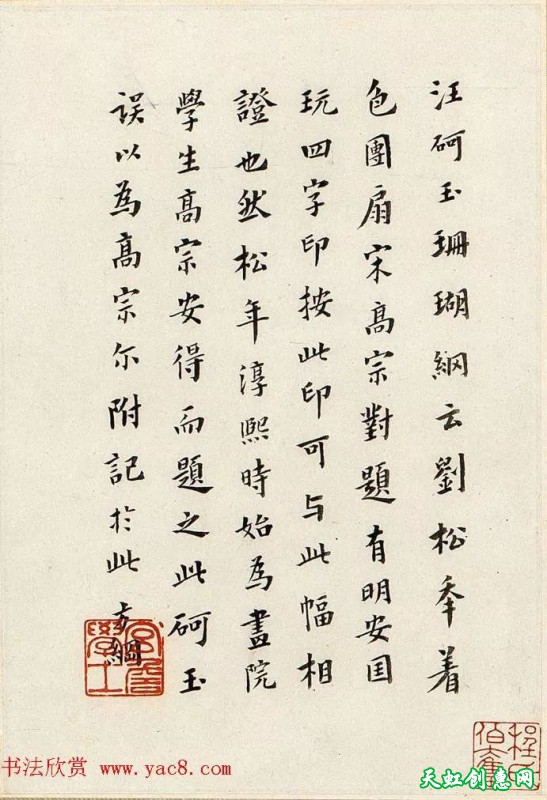 汪砢玉珊瑚網云劉松秊着
色團扇宋高宗對題有明安国
玩四字印按此印可与此幅相
證也然松年淳熙時始為畫院
學生高宗安得而題之此砢玉
誤以為高宗尔附記於此 方綱
宮詹學士
书法欣赏 www.yac8.com
天虹创意网